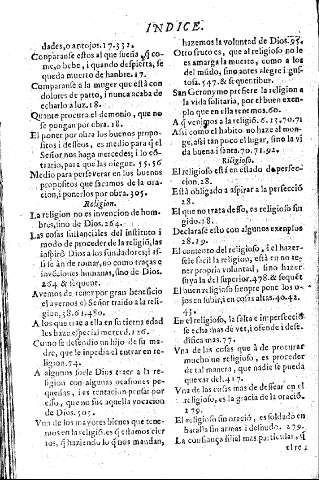 INDICE.
dades, o antojos. 17. 332.
Comparanse estos al que sueña q̃ co-
me, o bebe, i quando despierta, se
queda muerto de hanbre. 17.
Comparanse a la muger que està con
dolores de parto, i nunca acaba de
echarlo a luz. 18.
Quanto procura el demonio, que no
se pongan por obra. 18.
El poner por obra los buenos propo-
sitos i desseos, es medio para q̃ el
Señor nos haga mercedes; i lo cõ-
trario, para que las niegue. 55. 56
Medio para perseverar en los buenos
propositos que sacamos de la ora-
cion, i ponerlos por obra. 305.
Religion.
La religion no es invencion de hom-
bres, sino de Dios. 264.
Las cosas sustanciales del instituto i
modo de proceder de la religiõ, las
inspirò Dios a los fundadores; i as-
si se àn de tomar, no como traças e
invẽciones humanas, sino de Dios.
264. & sequent.
Avemos de tener por gran beneficio
el avernos el Señor traido a la reli-
gion. 38. 61. 480.
A los que trae a ella en su tierna edad
les haze especial merced. 126.
Como se defendio un hijo de su ma-
dre, que le inpedia el entrar en re-
ligion. 74.
A algunos suele Dios traer a la reli-
gion con algunas ocasiones pe-
queñas, i es tentacion pensar por
esso, que no fue aquella vocacion
de Dios. 505.
Vno de los mayores bienes que tene-
mos en la religiõ, es q̃ estamos cier-
tos, q̃ haziendo lo q̃ nos mandan,
hazemos la voluntad de Dios. 95.
Otro fruto es, que al religioso no le
es amarga la muerte, como a los
del mũdo, sino antes alegre i gus-
tosa. 547. & sequentibus.
San Geronymo prefiere la religion a
la vida solitaria, por el buen exem-
plo que en ella tenemos. 60.
A q̃ venimos a la religiõ. 6. 13. 70. 71
Assi como el habito no haze al mon-
ge, assi tan poco el lugar, sino la vi
da buena i santa. 70. 71. 92.
Religioso.
El religioso està en estado de perfec-
cion. 28.
Està obligado a aspirar a la perfecciõ
28.
El que no trata desto, es religioso fin-
gido. 28.
Declarase esto con algunos exemplos
28. 29.
El contento del religioso, i el hazer-
sele facil la religion, està en no te-
ner propria voluntad, sino hazer
suya la del superior. 478. & sequẽt
El buen religioso sienpre pone los o-
jos en subir, i en cosas altas. 40. 42.
43.
En el religioso, la falta e imperfecciõ
se echa mas de ver, i ofende i dese-
difica mas. 77.
Vna de las cosas que à de procurar
mucho un religioso, es proceder
de tal manera, que nadie se pueda
quexar del. 417.
Vna de las cosas mas de desear en el
religioso, es la gracia de la oraciõ.
279.
El religioso sin oraciõ, es soldado en
batalla sin armas i desnudo. 279.
La confiança filial mas particular, q̃
el re-